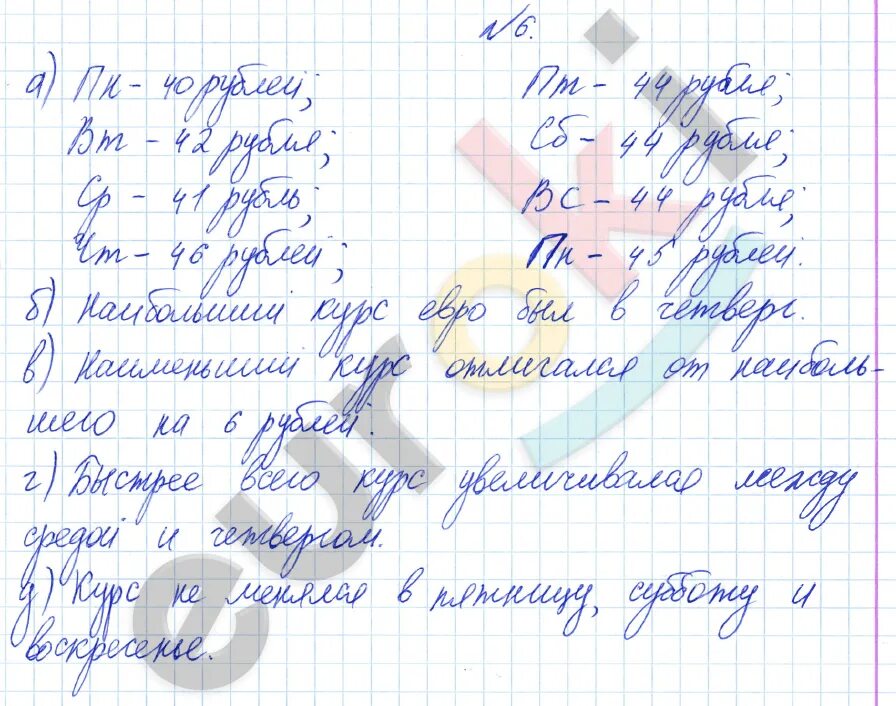 №6.
а) Пн - 40 рублей; Пт - 44 рубля;
Вт - 42 рубля; Сб - 44 рубля;
Ср - 41 рубль; ВС - 44 рубля;
Чт - 46 рублей; Пн - 45 рублей.
б) Наибольший курс евро был в четверг.
в) Наименьший курс отличался от наиболь-
шего на 6 рублей.
г) Быстрее всего курс увеличивался между
средой и четвергом.
д) Курс не менялся в пятницу, субботу и
воскресенье.
euroki